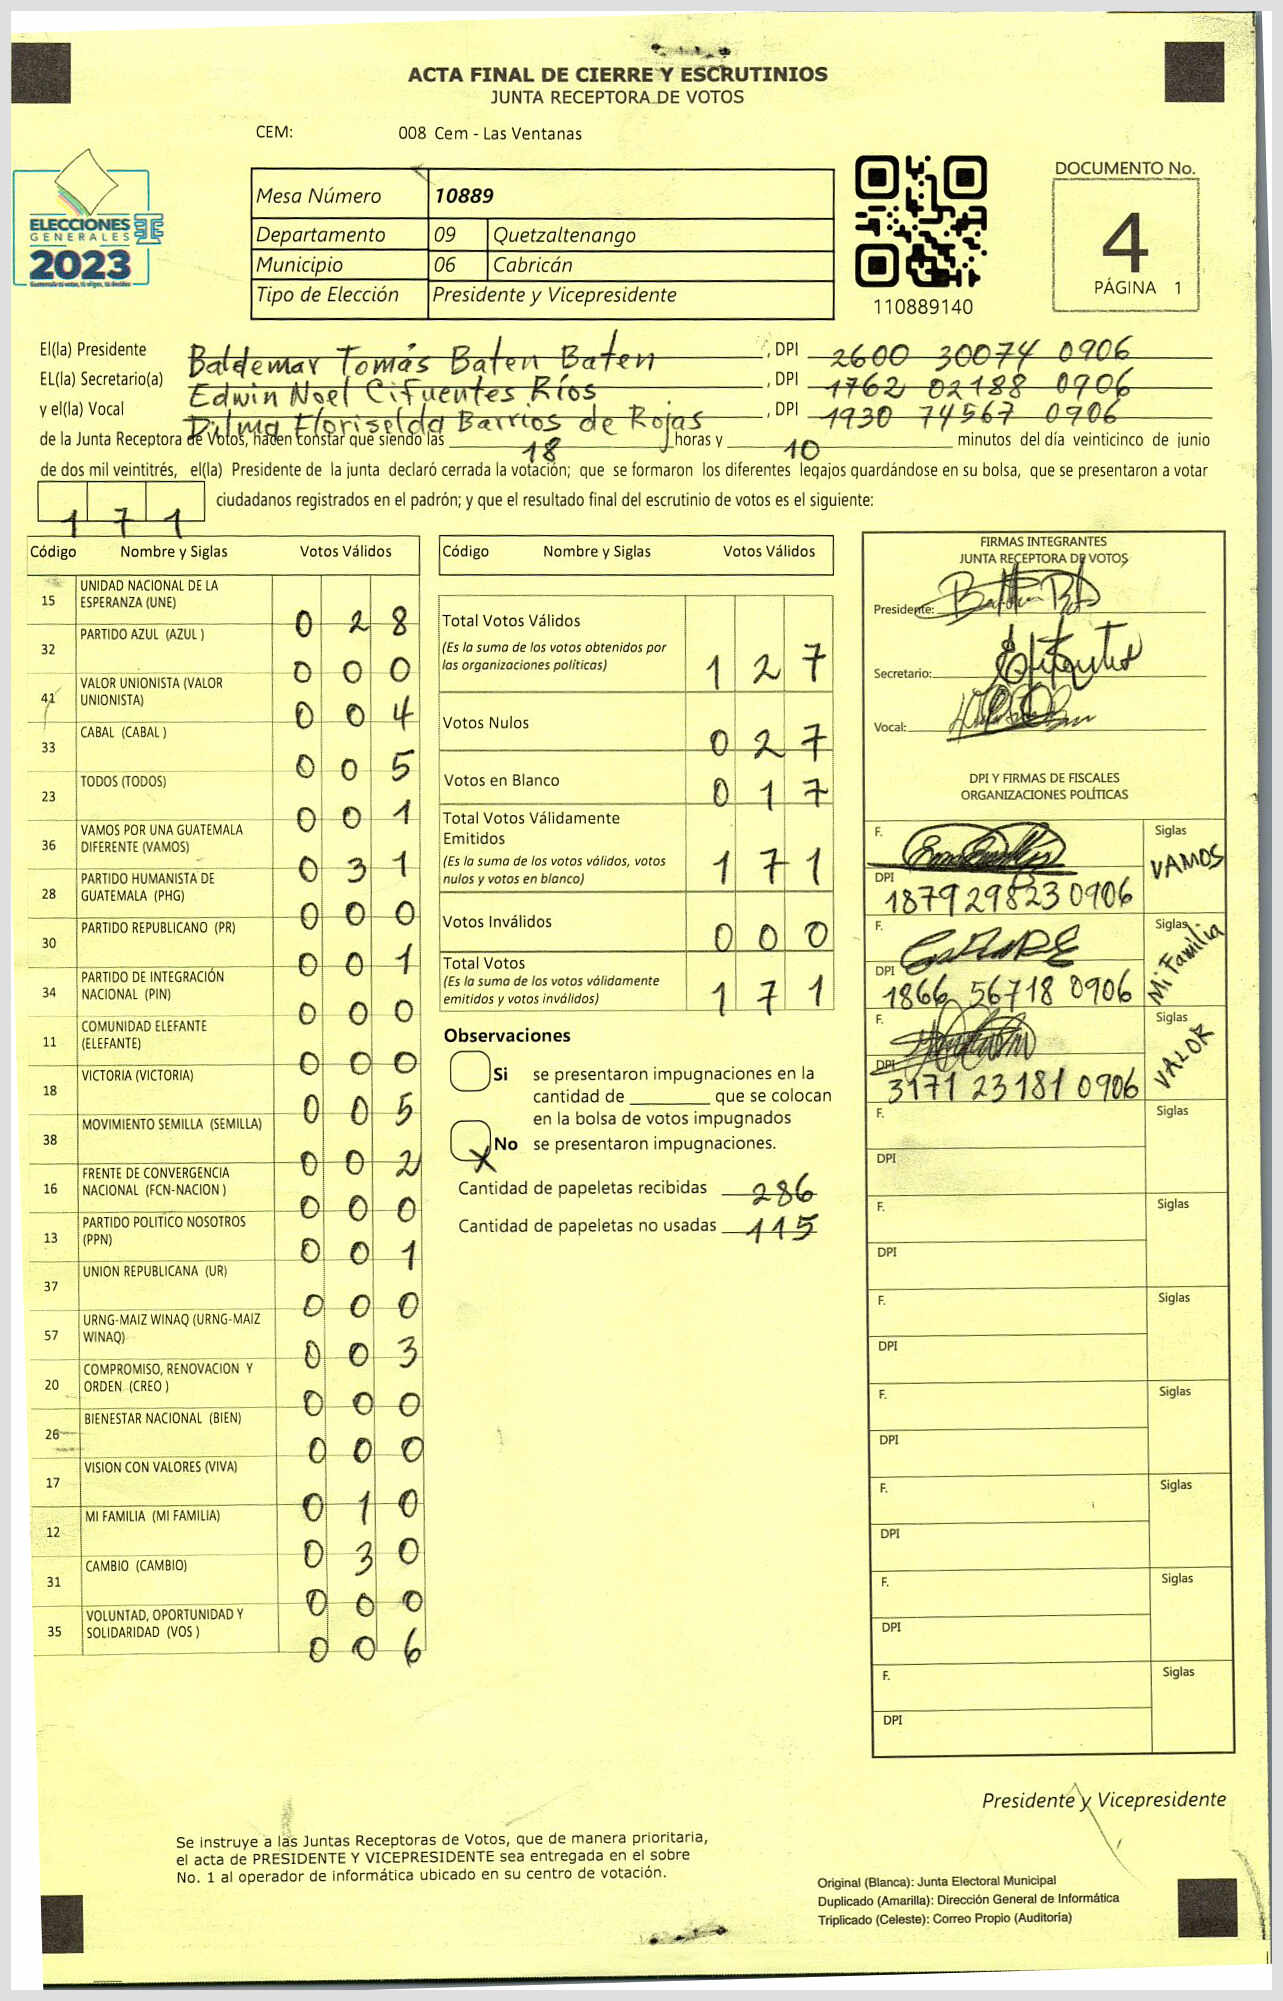 ACTA FINAL DE CIERRE Y ESCRUTINIOS
JUNTA RECEPTORA DE VOTOS
CEM: 008 Cem - Las Ventanas
ELECCIONES
GENERALES
2023
Mesa Número 10889
Departamento 09 Quetzaltenango
Municipio 06 Cabricán
Tipo de Elección Presidente y Vicepresidente
110889140
DOCUMENTO No.
4
PÁGINA 1
El(la) Presidente Baldemar Tomás Baten Baten, DPI 2600 30074 0906
EL(la) Secretario(a) Edwin Noel Cifuentes Ríos, DPI 1762 02188 0906
y el(la) Vocal Dilma Floriselda Barrios de Rojas, DPI 1930 74567 0906
de la Junta Receptora de Votos, hacen constar que siendo las 18 horas y 10 minutos del día veinticinco de junio
de dos mil veintitrés, el(la) Presidente de la junta declaró cerrada la votación; que se formaron los diferentes legajos guardándose en su bolsa, que se presentaron a votar
171 ciudadanos registrados en el padrón; y que el resultado final del escrutinio de votos es el siguiente:
Código Nombre y Siglas Votos Válidos
15 UNIDAD NACIONAL DE LA ESPERANZA (UNE) 0 2 8
32 PARTIDO AZUL (AZUL ) 0 0 0
41 VALOR UNIONISTA (VALOR UNIONISTA) 0 0 4
33 CABAL (CABAL ) 0 0 5
23 TODOS (TODOS) 0 0 1
36 VAMOS POR UNA GUATEMALA DIFERENTE (VAMOS) 0 3 1
28 PARTIDO HUMANISTA DE GUATEMALA (PHG) 0 0 0
30 PARTIDO REPUBLICANO (PR) 0 0 1
34 PARTIDO DE INTEGRACIÓN NACIONAL (PIN) 0 0 0
11 COMUNIDAD ELEFANTE (ELEFANTE) 0 0 0
18 VICTORIA (VICTORIA) 0 0 5
38 MOVIMIENTO SEMILLA (SEMILLA) 0 0 2
16 FRENTE DE CONVERGENCIA NACIONAL (FCN-NACION ) 0 0 0
13 PARTIDO POLITICO NOSOTROS (PPN) 0 0 1
37 UNION REPUBLICANA (UR) 0 0 0
57 URNG-MAIZ WINAQ (URNG-MAIZ WINAQ) 0 0 3
20 COMPROMISO, RENOVACION Y ORDEN (CREO ) 0 0 0
26 BIENESTAR NACIONAL (BIEN) 0 0 0
17 VISION CON VALORES (VIVA) 0 1 0
12 MI FAMILIA (MI FAMILIA) 0 3 0
31 CAMBIO (CAMBIO) 0 0 0
35 VOLUNTAD, OPORTUNIDAD Y SOLIDARIDAD (VOS ) 0 0 6
Código Nombre y Siglas Votos Válidos
Total Votos Válidos
(Es la suma de los votos obtenidos por las organizaciones políticas) 1 2 7
Votos Nulos 0 2 7
Votos en Blanco 0 1 7
Total Votos Válidamente Emitidos
(Es la suma de los votos válidos, votos nulos y votos en blanco) 1 7 1
Votos Inválidos 0 0 0
Total Votos
(Es la suma de los votos válidamente emitidos y votos inválidos) 1 7 1
Observaciones
Si se presentaron impugnaciones en la
cantidad de ________ que se colocan
en la bolsa de votos impugnados
X No se presentaron impugnaciones.
Cantidad de papeletas recibidas 286
Cantidad de papeletas no usadas 115
FIRMAS INTEGRANTES
JUNTA RECEPTORA DE VOTOS
Presidente:
Secretario:
Vocal:
DPI Y FIRMAS DE FISCALES
ORGANIZACIONES POLÍTICAS
F. Siglas VAMOS
DPI 1879 29823 0906
F. Siglas Mi Familia
DPI 1866 56718 0906
F. Siglas VALOR
DPI 3171 23181 0906
F. Siglas
DPI
F. Siglas
DPI
F. Siglas
DPI
F. Siglas
DPI
F. Siglas
DPI
F. Siglas
DPI
F. Siglas
DPI
Presidente y Vicepresidente
Se instruye a las Juntas Receptoras de Votos, que de manera prioritaria,
el acta de PRESIDENTE Y VICEPRESIDENTE sea entregada en el sobre
No. 1 al operador de informática ubicado en su centro de votación.
Original (Blanca): Junta Electoral Municipal
Duplicado (Amarilla): Dirección General de Informática
Triplicado (Celeste): Correo Propio (Auditoría)